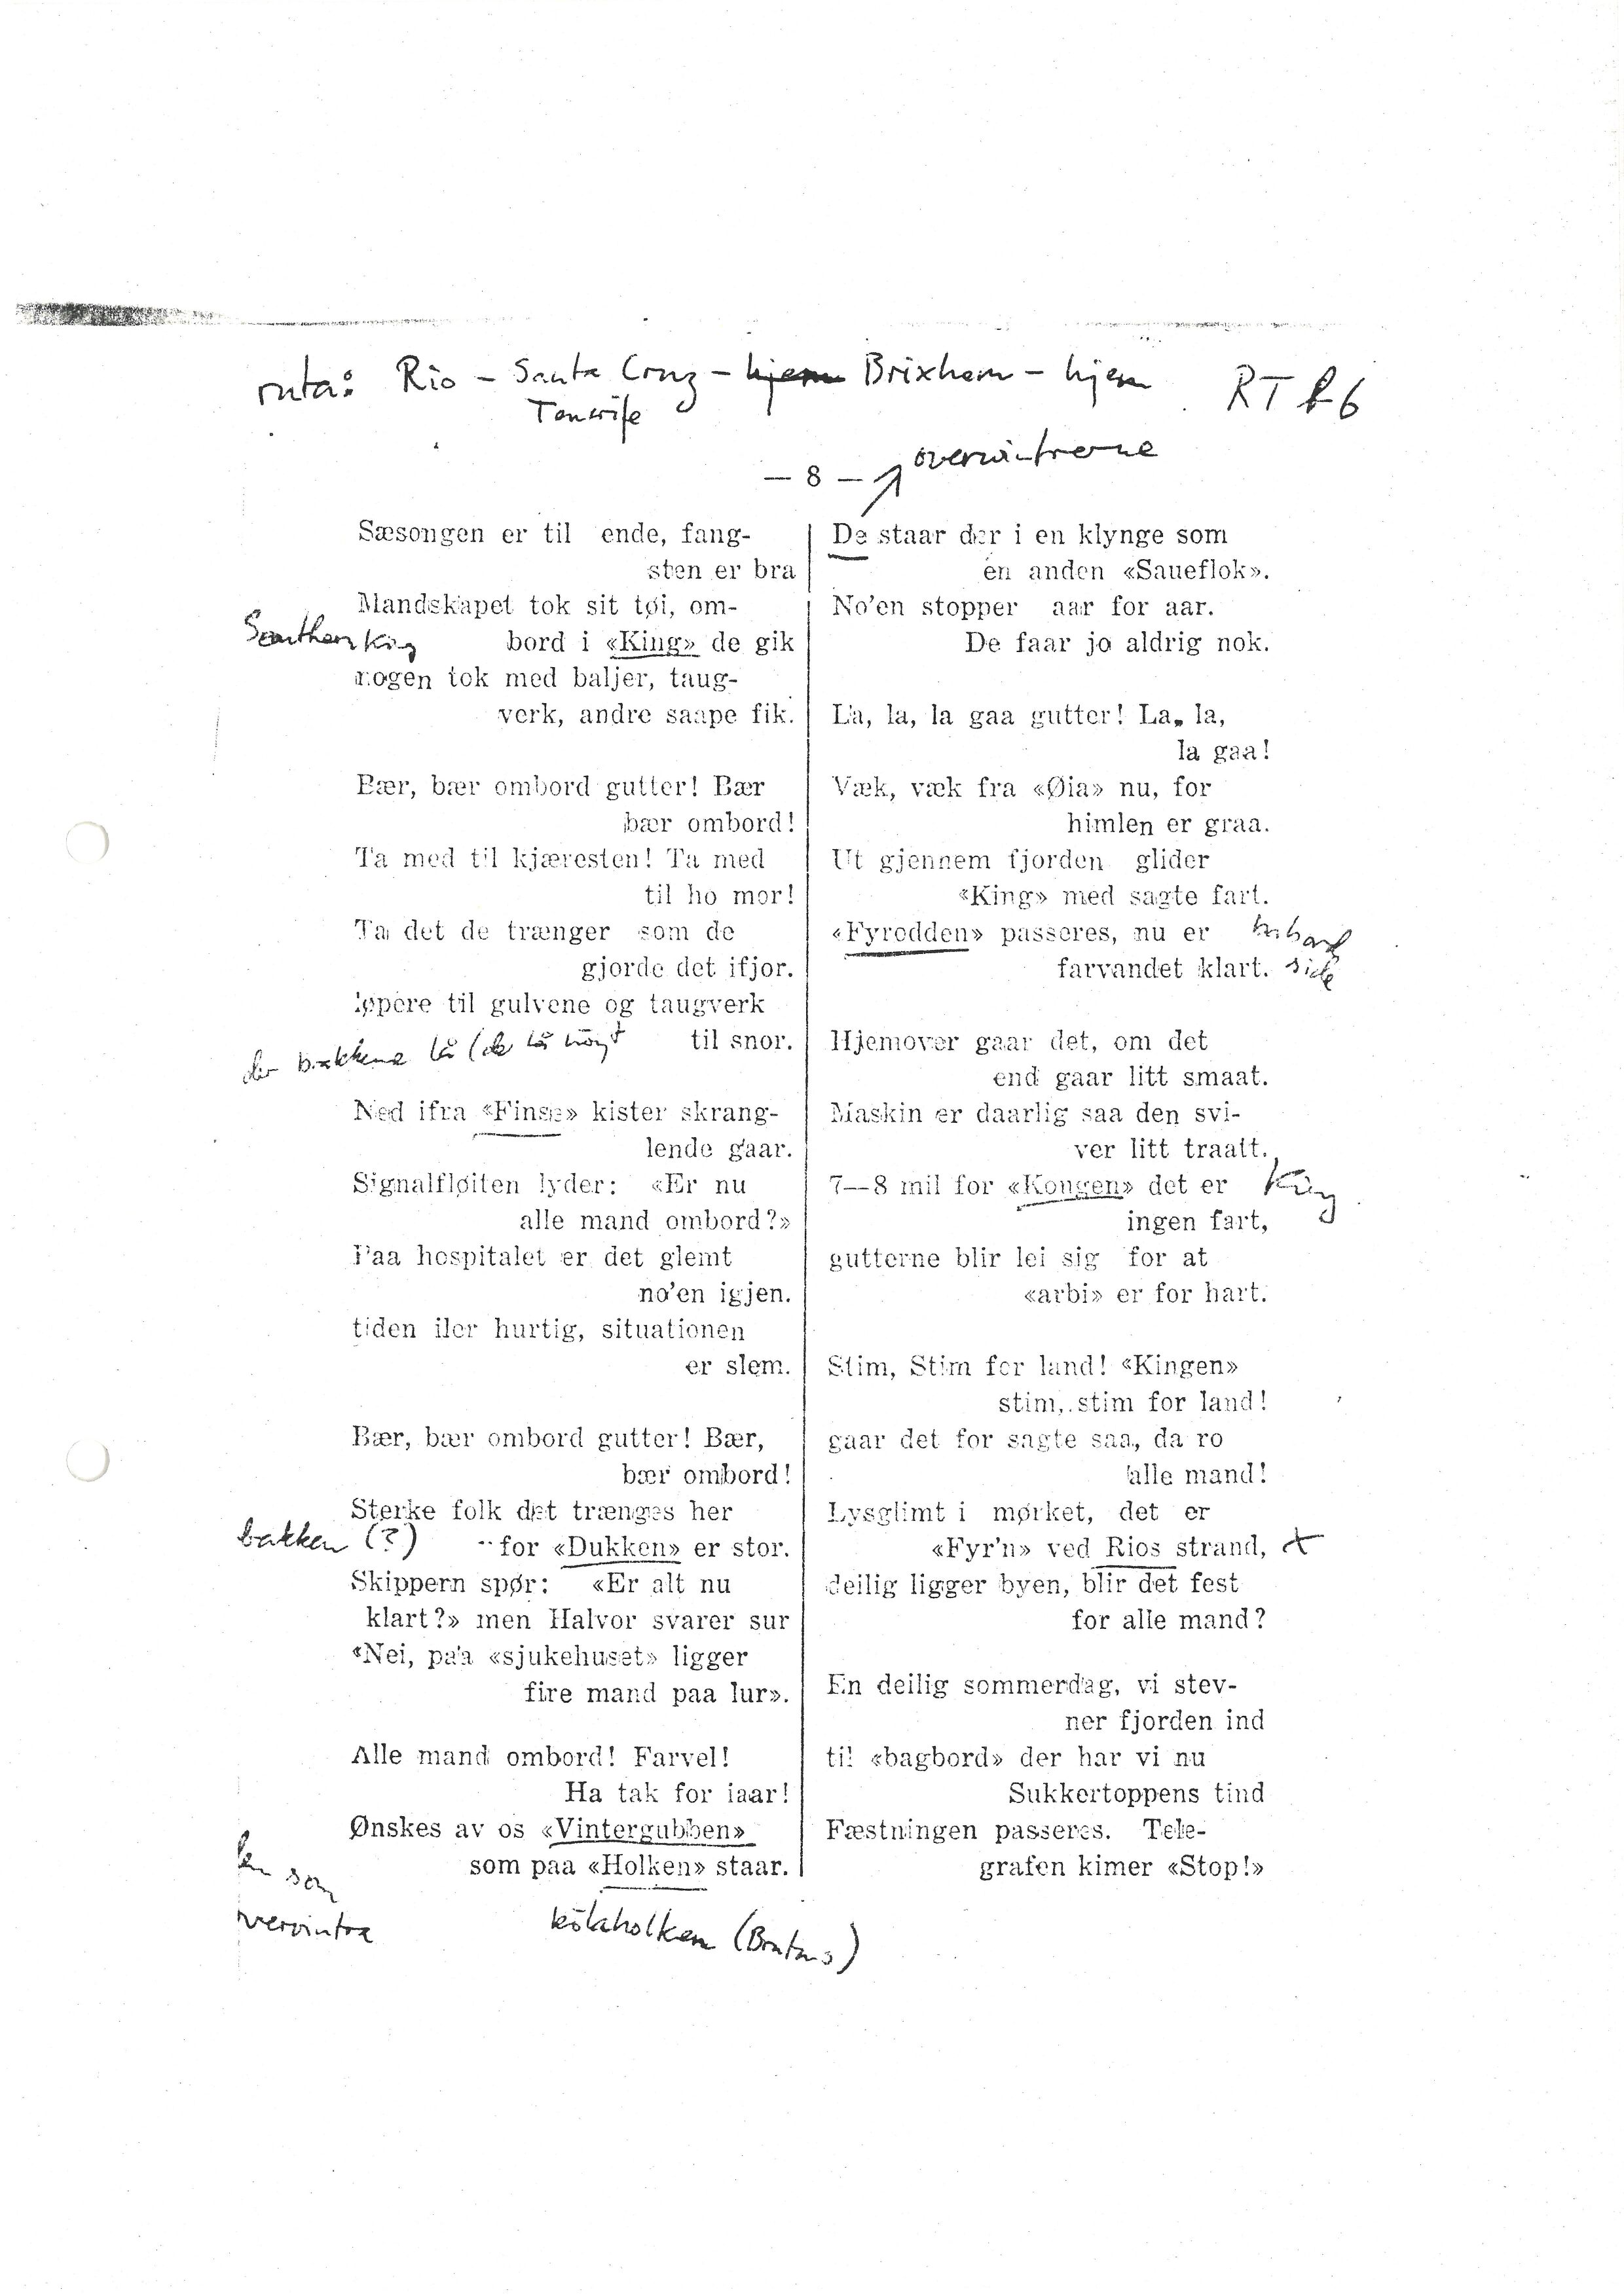 ruta: Rio - Santa Cruz - hjem Brixham - hjem
Tenerife
RT
overvintrerne
— 8 —
Sæsongen er til ende, fang-
sten er bra
Mandskapet tok sit tøi, om-
Southern King
bord i «King» de gik
nogen tok med baljer, taug-
verk, andre saape fik.
Bær, bær ombord gutter! Bær
bær ombord!
Ta med til kjæresten! Ta med
til ho mor!
Ta det de trænger som de
gjorde det ifjor.
løpere til gulvene og taugverk
til snor.
der brakkene lå (de lå høyt
Ned ifra «Finse» kister skrang-
lende gaar.
Signalfløiten lyder: «Er nu
alle mand ombord?»
Paa hospitalet er det glemt
no'en igjen.
tiden iler hurtig, situationen
er slem.
Bær, bær ombord gutter! Bær,
bær ombord!
Sterke folk det trænges her
bakken (?)
for «Dukken» er stor.
Skippern spør: «Er alt nu
klart?» men Halvor svarer sur
«Nei, paa «sjukehuset» ligger
fire mand paa lur».
Alle mand ombord! Farvel!
Ha tak for iaar!
Ønskes av os «Vintergubben»
som paa «Holken» staar.
som
overvintra
kölaholken (Brutus)
De staar der i en klynge som
en anden «Saueflok».
No'en stopper aar for aar.
De faar jo aldrig nok.
La, la, la gaa gutter! La, la,
la gaa!
Væk, væk fra «Øia» nu, for
himlen er graa.
Ut gjennem fjorden glider
«King» med sagte fart.
«Fyrodden» passeres, nu er
farvandet klart.
side
Hjemover gaar det, om det
end gaar litt smaat.
Maskin er daarlig saa den svi-
ver litt traatt.
7—8 mil for «Kongen» det er
King
ingen fart,
gutterne blir lei sig for at
«arbi» er for hart.
Stim, Stim for land! «Kingen»
stim, stim for land!
gaar det for sagte saa, da ro
alle mand!
Lysglimt i mørket, det er
«Fyr'n» ved Rios strand,
deilig ligger byen, blir det fest
for alle mand?
En deilig sommerdag, vi stev-
ner fjorden ind
til «bagbord» der har vi nu
Sukkertoppens tind
Fæstningen passeres. Tele-
grafen kimer «Stop!»